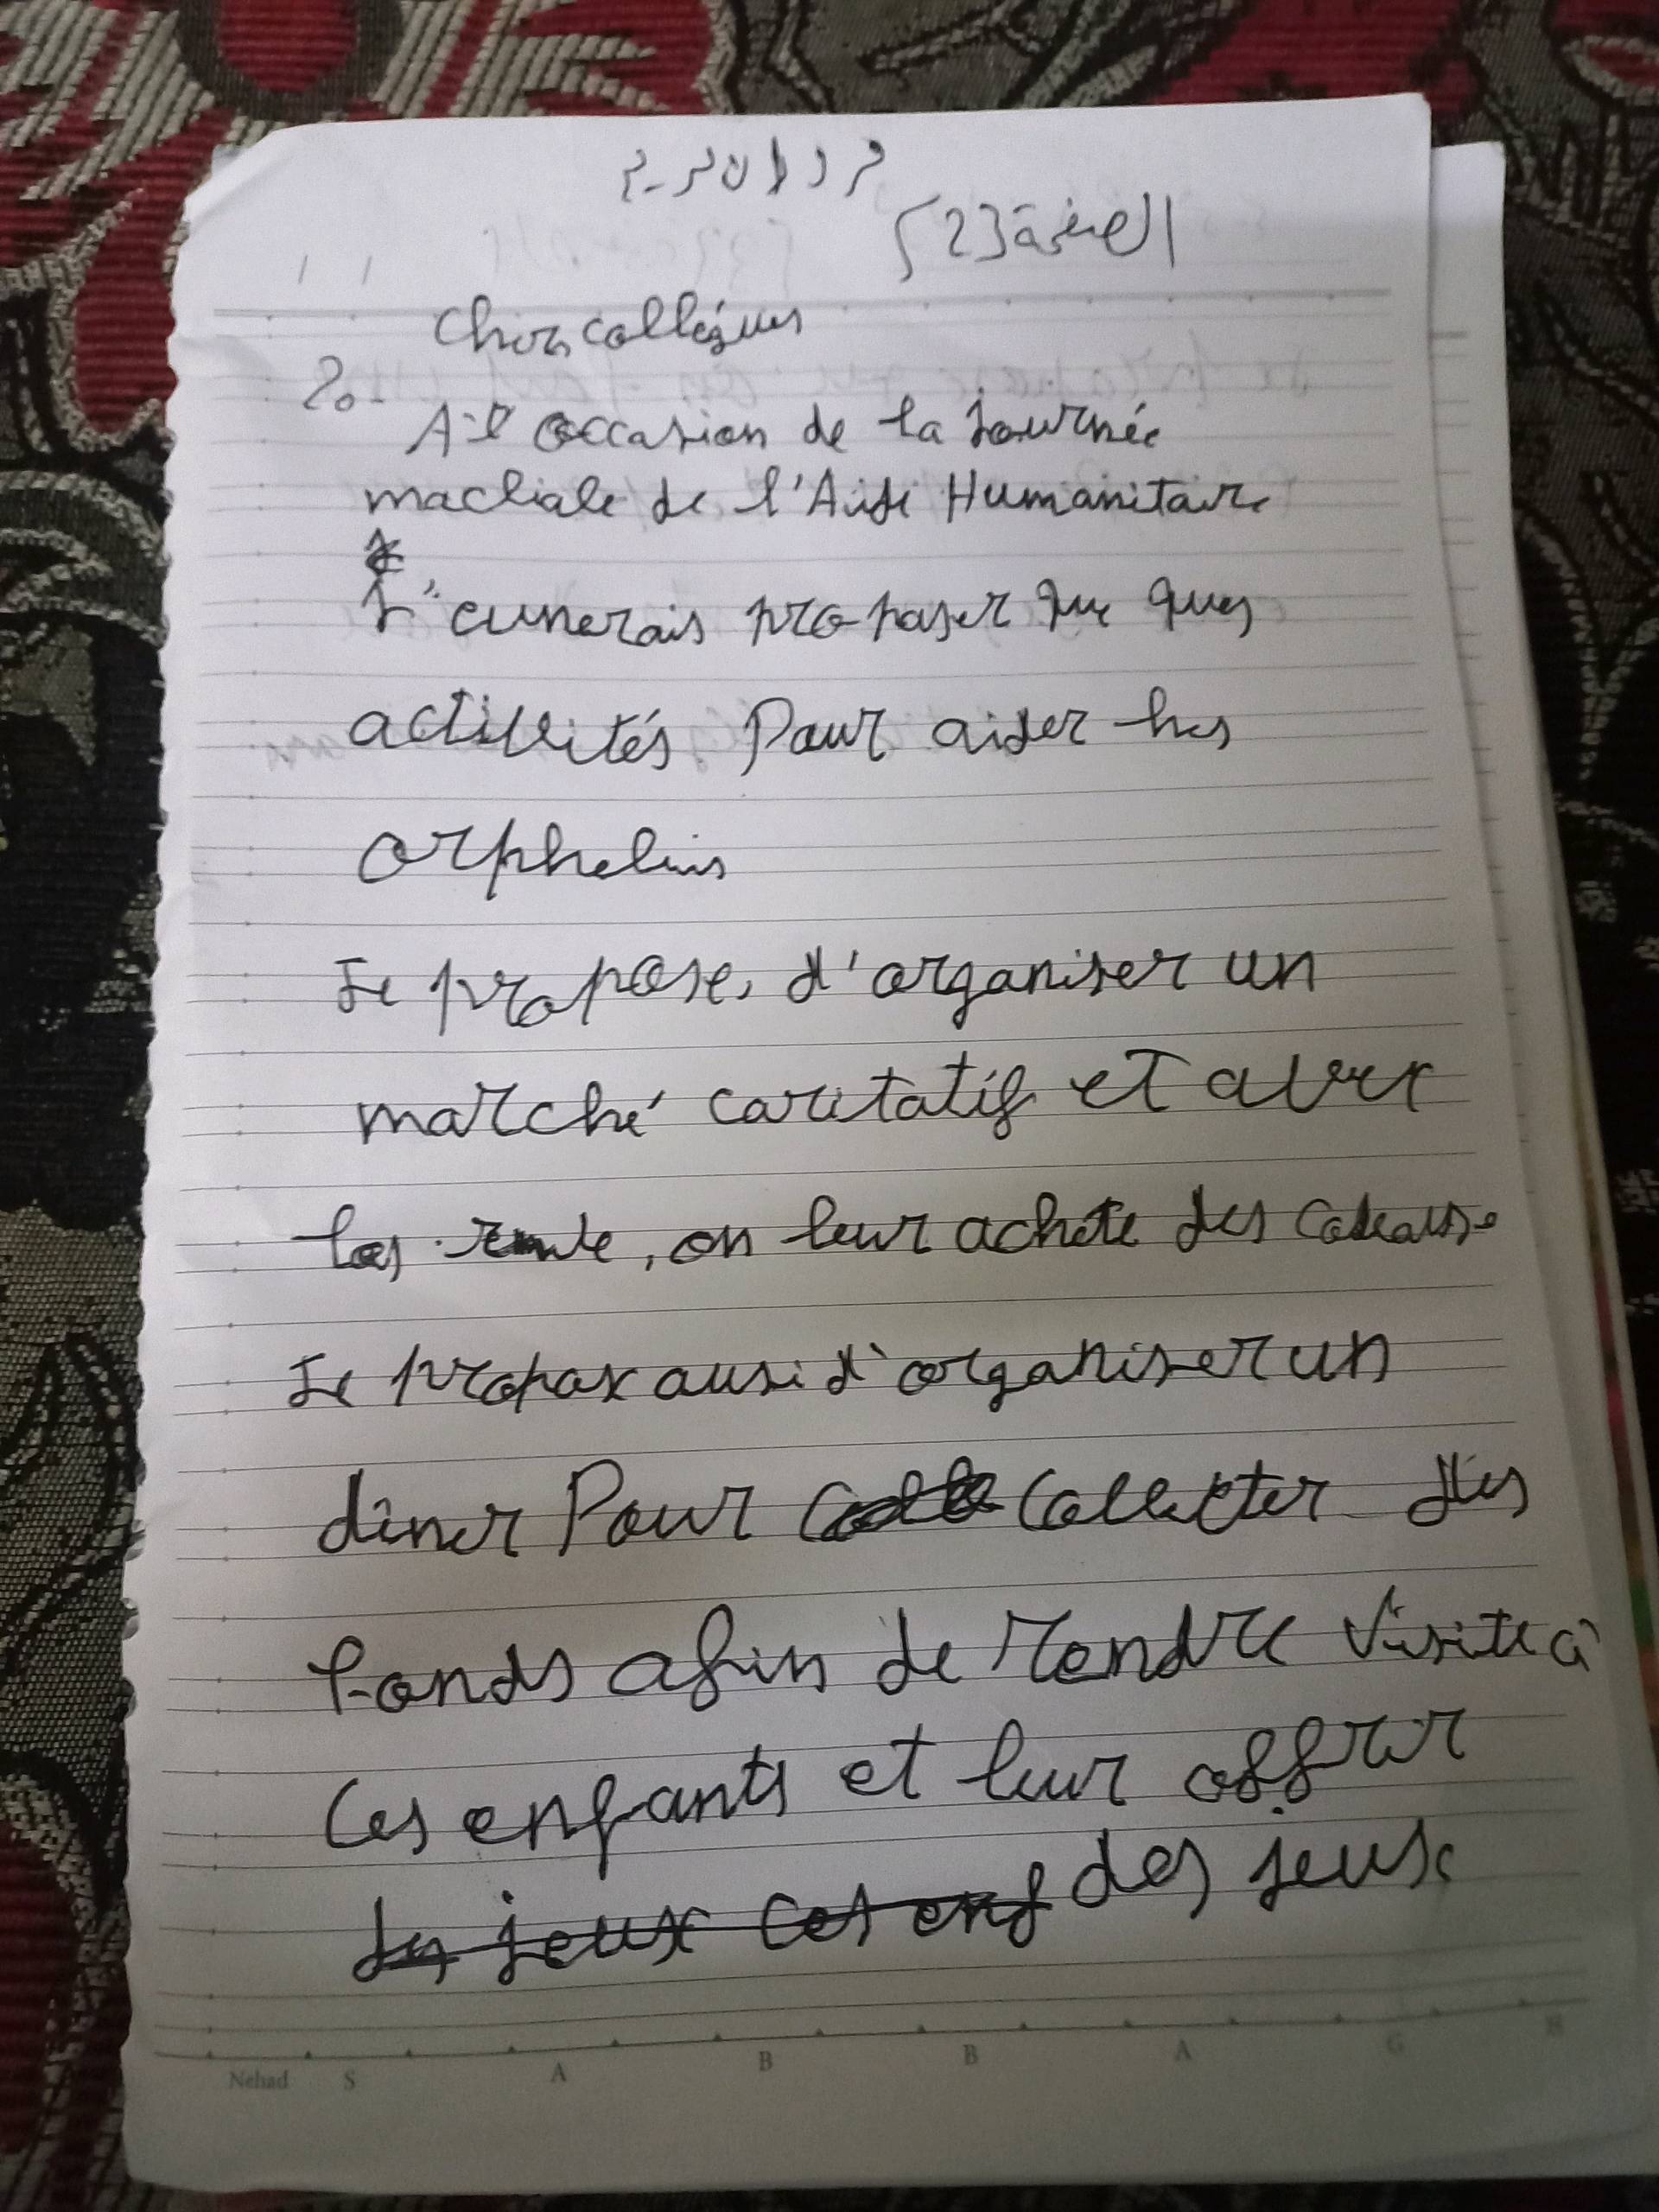 الصفحة {23}
Chers collégues
20
A l'occasion de la Journée
macliale de l'Aide Humanitaire
J'cunerais proposer que ques
activités Pour aider les
orphelins
Je propose, d'organiser un
marché caritatif et avec
les vente, on leur achete des cadeaux.
Je propose aussi d'organiser un
dîner Pour Collecter des
fonds afin de rendre visite à
Ces enfants et leur offrir
des jeux Ces enf des jeux
Nehad S A B B A G H